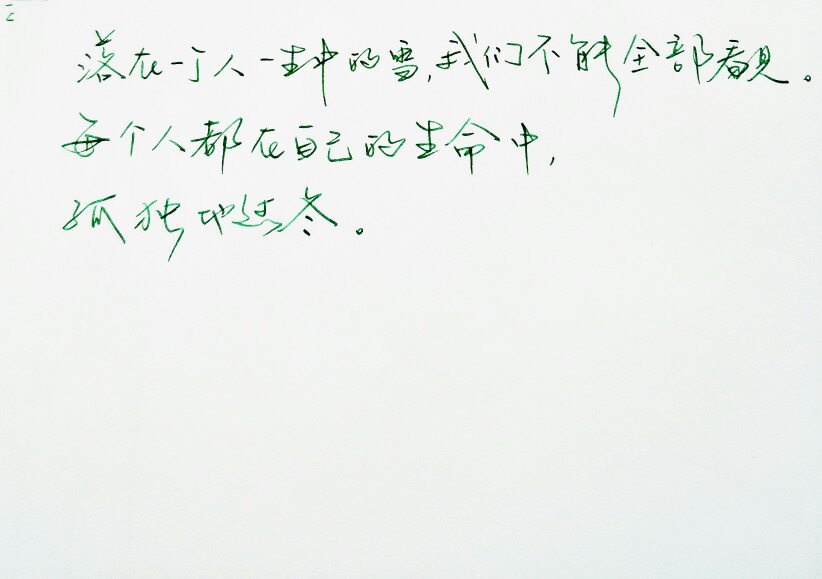 落在一个人一生中的雪,我们不能全部看见。
每个人都在自己的生命中,
孤独地过冬。